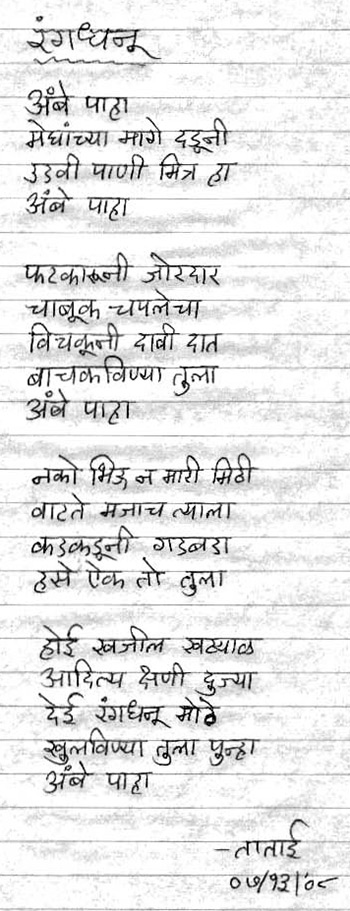 रंगधनू
अंबे पाहा
मेघांच्या मागे दडूनी
उडवी पाणी मित्र हा
अंबे पाहा
फटकारूनी जोरदार
चाबूक चपलेचा
विचकूनी दावी दात
बाचकविण्या तुला
अंबे पाहा
नको भिऊ न मारी मिठी
वाटते मजाच त्याला
कडकडूनी गडबडा
हसे ऐक तो तुला
होई खजील खट्याळ
आदित्य क्षणी दुज्या
देई रंगधनू मोठे
खुलविण्या तुला पुन्हा
अंबे पाहा
– ताताई